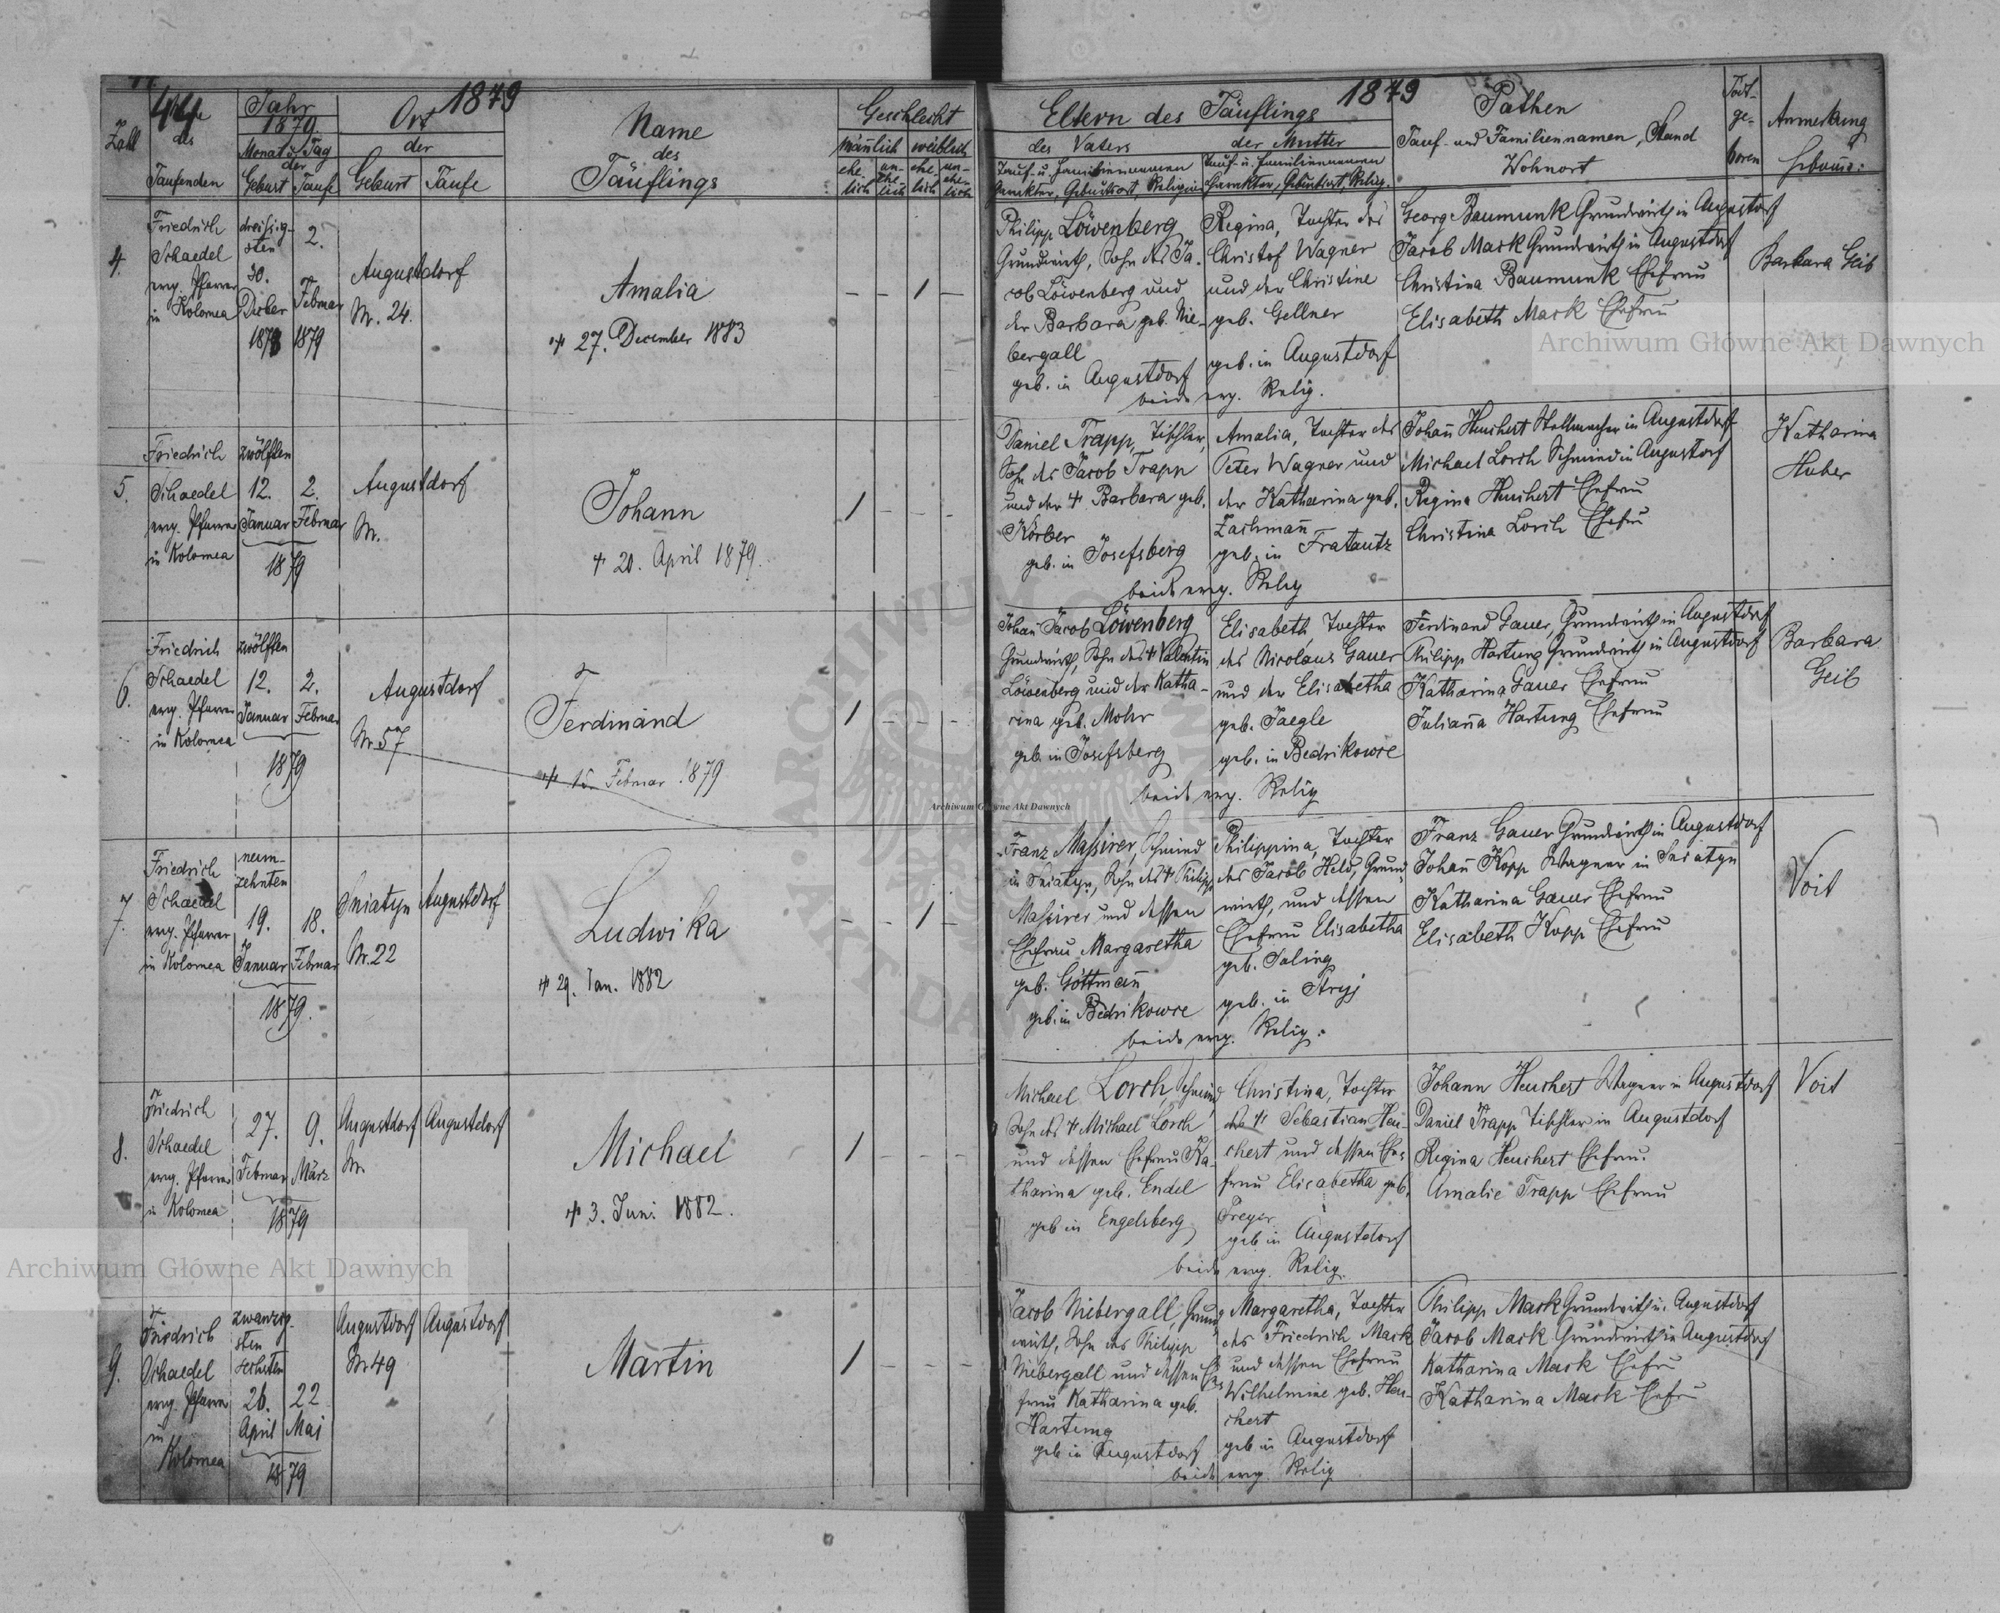 44
1879
1879
Zahl
des
Taufenden
Jahr
1879
Monat u. Tag
der
Geburt Taufe
Ort
der
Geburt Taufe
Name
des
Täuflings
Geschlecht
männlich weiblich
ehe-
lich
un-
ehe-
lich
ehe-
lich
un-
ehe-
lich
Eltern des Täuflings
des Vaters
der Mutter
Tauf- u. Familiennamen
Charakter, Geburtsort, Religion
Tauf- u. Familiennamen
Charakter, Geburtsort, Relig.
Pathen
Tauf- und Familiennamen, Stand
Wohnort
Todt-
ge-
boren
Anmerkung
Hebamme:
4.
Friedrich
Schaedel
evg. Pfarrer
in Kolomea
dreisig-
sten
30.
Dezber
1878
2.
Februar
1879
Augustdorf
Nr. 24.
Amalia
+ 27. December 1883
– – 1 –
Philipp Löwenberg
Grundwirth, Sohn des Ja-
cob Löwenberg und
der Barbara geb. Nie-
bergall
geb. in Augustdorf
Regina, Tochter des
Christof Wagner
und der Christine
geb. Gellner
geb. in Augustdorf
beide evg. Relig.
Georg Baumunk Grundwirth in Augustdorf
Jacob Mark Grundwirth in Augustdorf
Christina Baumunk Ehefrau
Elisabeth Mark Ehefrau
Barbara Geib
5.
Friedrich
Schaedel
evg. Pfarrer
in Kolomea
zwölften
12.
Januar
2.
Februar
1879
Augustdorf
Nr.
Johann
+ 20. April 1879.
1 – – –
Daniel Trapp, Tischler,
Sohn des Jacob Trapp
und der + Barbara geb.
Körber
geb. in Josefsberg
Amalia, Tochter des
Peter Wagner und
der Katharina geb.
Zachmann
geb. in Fratautz
beide evg. Relig
Johann Heuchert Stellmacher in Augustdorf
Michael Lorch Schmied in Augustdorf
Regina Heuchert Ehefrau
Christina Lorch Ehefrau
Katharina
Huber
6.
Friedrich
Schaedel
evg. Pfarrer
in Kolomea
zwölften
12.
Januar
2.
Februar
1879
Augustdorf
Nr. 57
Ferdinand
+ 15. Februar 1879
1 – – –
Johann Jacob Löwenberg
Grundwirth, Sohn des + Valentin
Löwenberg und der Katha-
rina geb. Mohr
geb. in Josefsberg
Elisabeth Tochter
des Nicolaus Gauer
und der Elisabetha
geb. Jaegle
geb. in Bedrikowce
beide evg. Relig
Ferdinand Gauer, Grundwirth in Augustdorf
Philipp Hartung Grundwirth in Augustdorf
Katharina Gauer Ehefrau
Julianna Hartung Ehefrau
Barbara
Geib
7.
Friedrich
Schaedel
evg. Pfarrer
in Kolomea
neun-
zehnten
19.
Januar
18.
Februar
1879.
Sniatyn
Nr. 22
Augustdorf
Ludwika
+ 29. Jan. 1882
– – 1 –
Franz Massirer, Schmied
in Sniatyn, Sohn des + Philipp
Massirer und dessen
Ehefrau Margaretha
geb. Göttmann
geb. in Bedrikowce
Philippina, Tochter
des Jacob Held, Grund-
wirth, und dessen
Ehefrau Elisabetha
geb. Saling
geb. in Stryj
beide evg. Relig.
Franz Gauer Grundwirth in Augustdorf
Johann Kopp Wagner in Sniatyn
Katharina Gauer Ehefrau
Elisabeth Kopp Ehefrau
Voit
8.
Friedrich
Schaedel
evg. Pfarrer
in Kolomea
27.
Februar
9.
März
1879
Augustdorf
Nr.
Augustdorf
Michael
+ 3. Juni 1882.
1 – – –
Michael Lorch, Schmied
Sohn des + Michael Lorch
und dessen Ehefrau Ka-
tharina geb. Endel
geb in Engelsberg
Christina, Tochter
des + Sebastian Heu-
chert und dessen Ehe-
frau Elisabetha geb.
Freyer
geb in Augustdorf
beide evg. Relig.
Johann Heuchert Wagner in Augustdorf
Daniel Trapp Tischler in Augustdorf
Regina Heuchert Ehefrau.
Amalie Trapp Ehefrau
Voit
9.
Friedrich
Schaedel
evg. Pfarrer
in
Kolomea
zwanzig-
sten
sechsten
26.
April
22
Mai
1879
Augustdorf
Nr 49
Augustdorf
Martin
1 – – –
Jacob Niebergall, Grund-
wirth, Sohn des Philipp
Niebergall und dessen Ehe-
frau Katharina geb.
Hartung
geb in Augustdorf
Margaretha, Tochter
des Friedrich Mark
und dessen Ehefrau
Wilhelmine geb. Heu-
chert
geb in Augustdorf
beide evg. Relig
Philipp Mark Grundwirth in Augustdorf
Jacob Mark Grundwirth in Augustdorf
Katharina Mark Ehefr
Katharina Mark Ehefr
Archiwum Główne Akt Dawnych
Archiwum Główne Akt Dawnych
Archiwum Główne Akt Dawnych